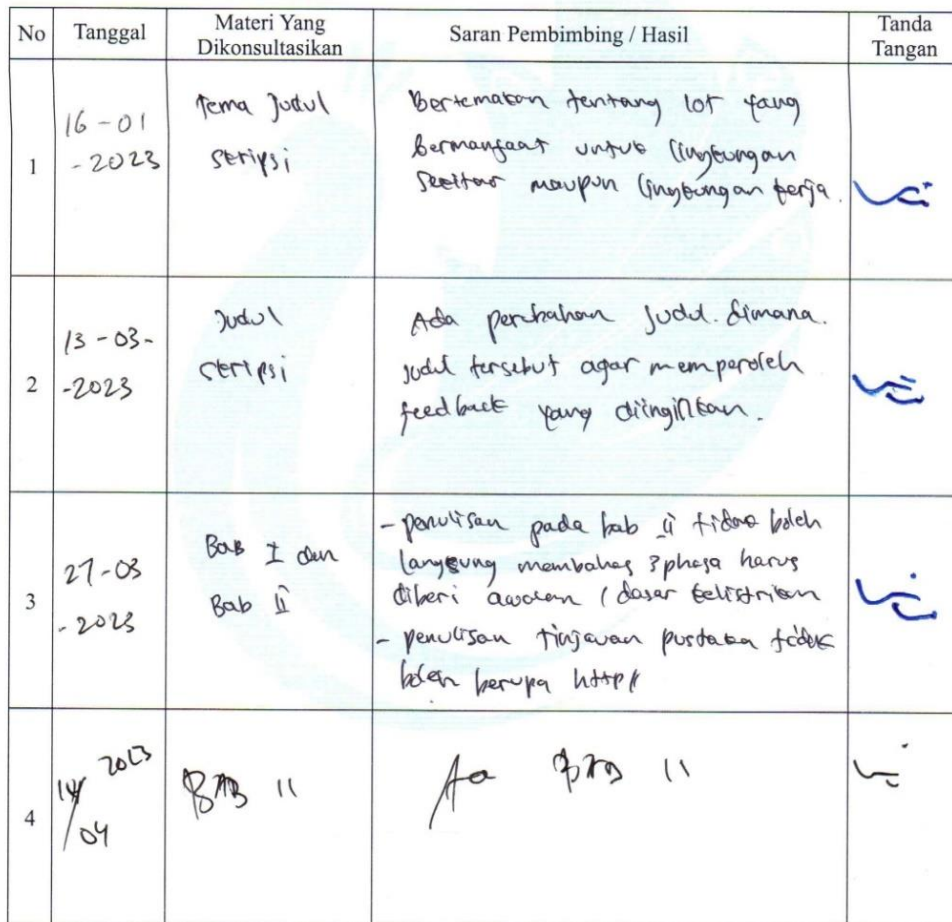 No
Tanggal
Materi Yang
Dikonsultasikan
Saran Pembimbing / Hasil
Tanda
Tangan
1
16-01
-2023
Tema Judul
Skripsi
Bertemakan tentang Iot yang
bermanfaat untuk lingkungan
sekitar maupun lingkungan kerja.
2
13-03-
-2023
Judul
skripsi
Ada perubahan judul. dimana.
judul tersebut agar memperoleh
feedback yang diinginkan.
3
27-03
-2023
Bab I dan
Bab II
- penulisan pada bab II tidak boleh
langsung membahas 3 phasa harus
diberi awalan / dasar kelistrikan
- penulisan tinjauan pustaka tidak
boleh berupa http//
4
14/04 2023
BAB II
BAB II